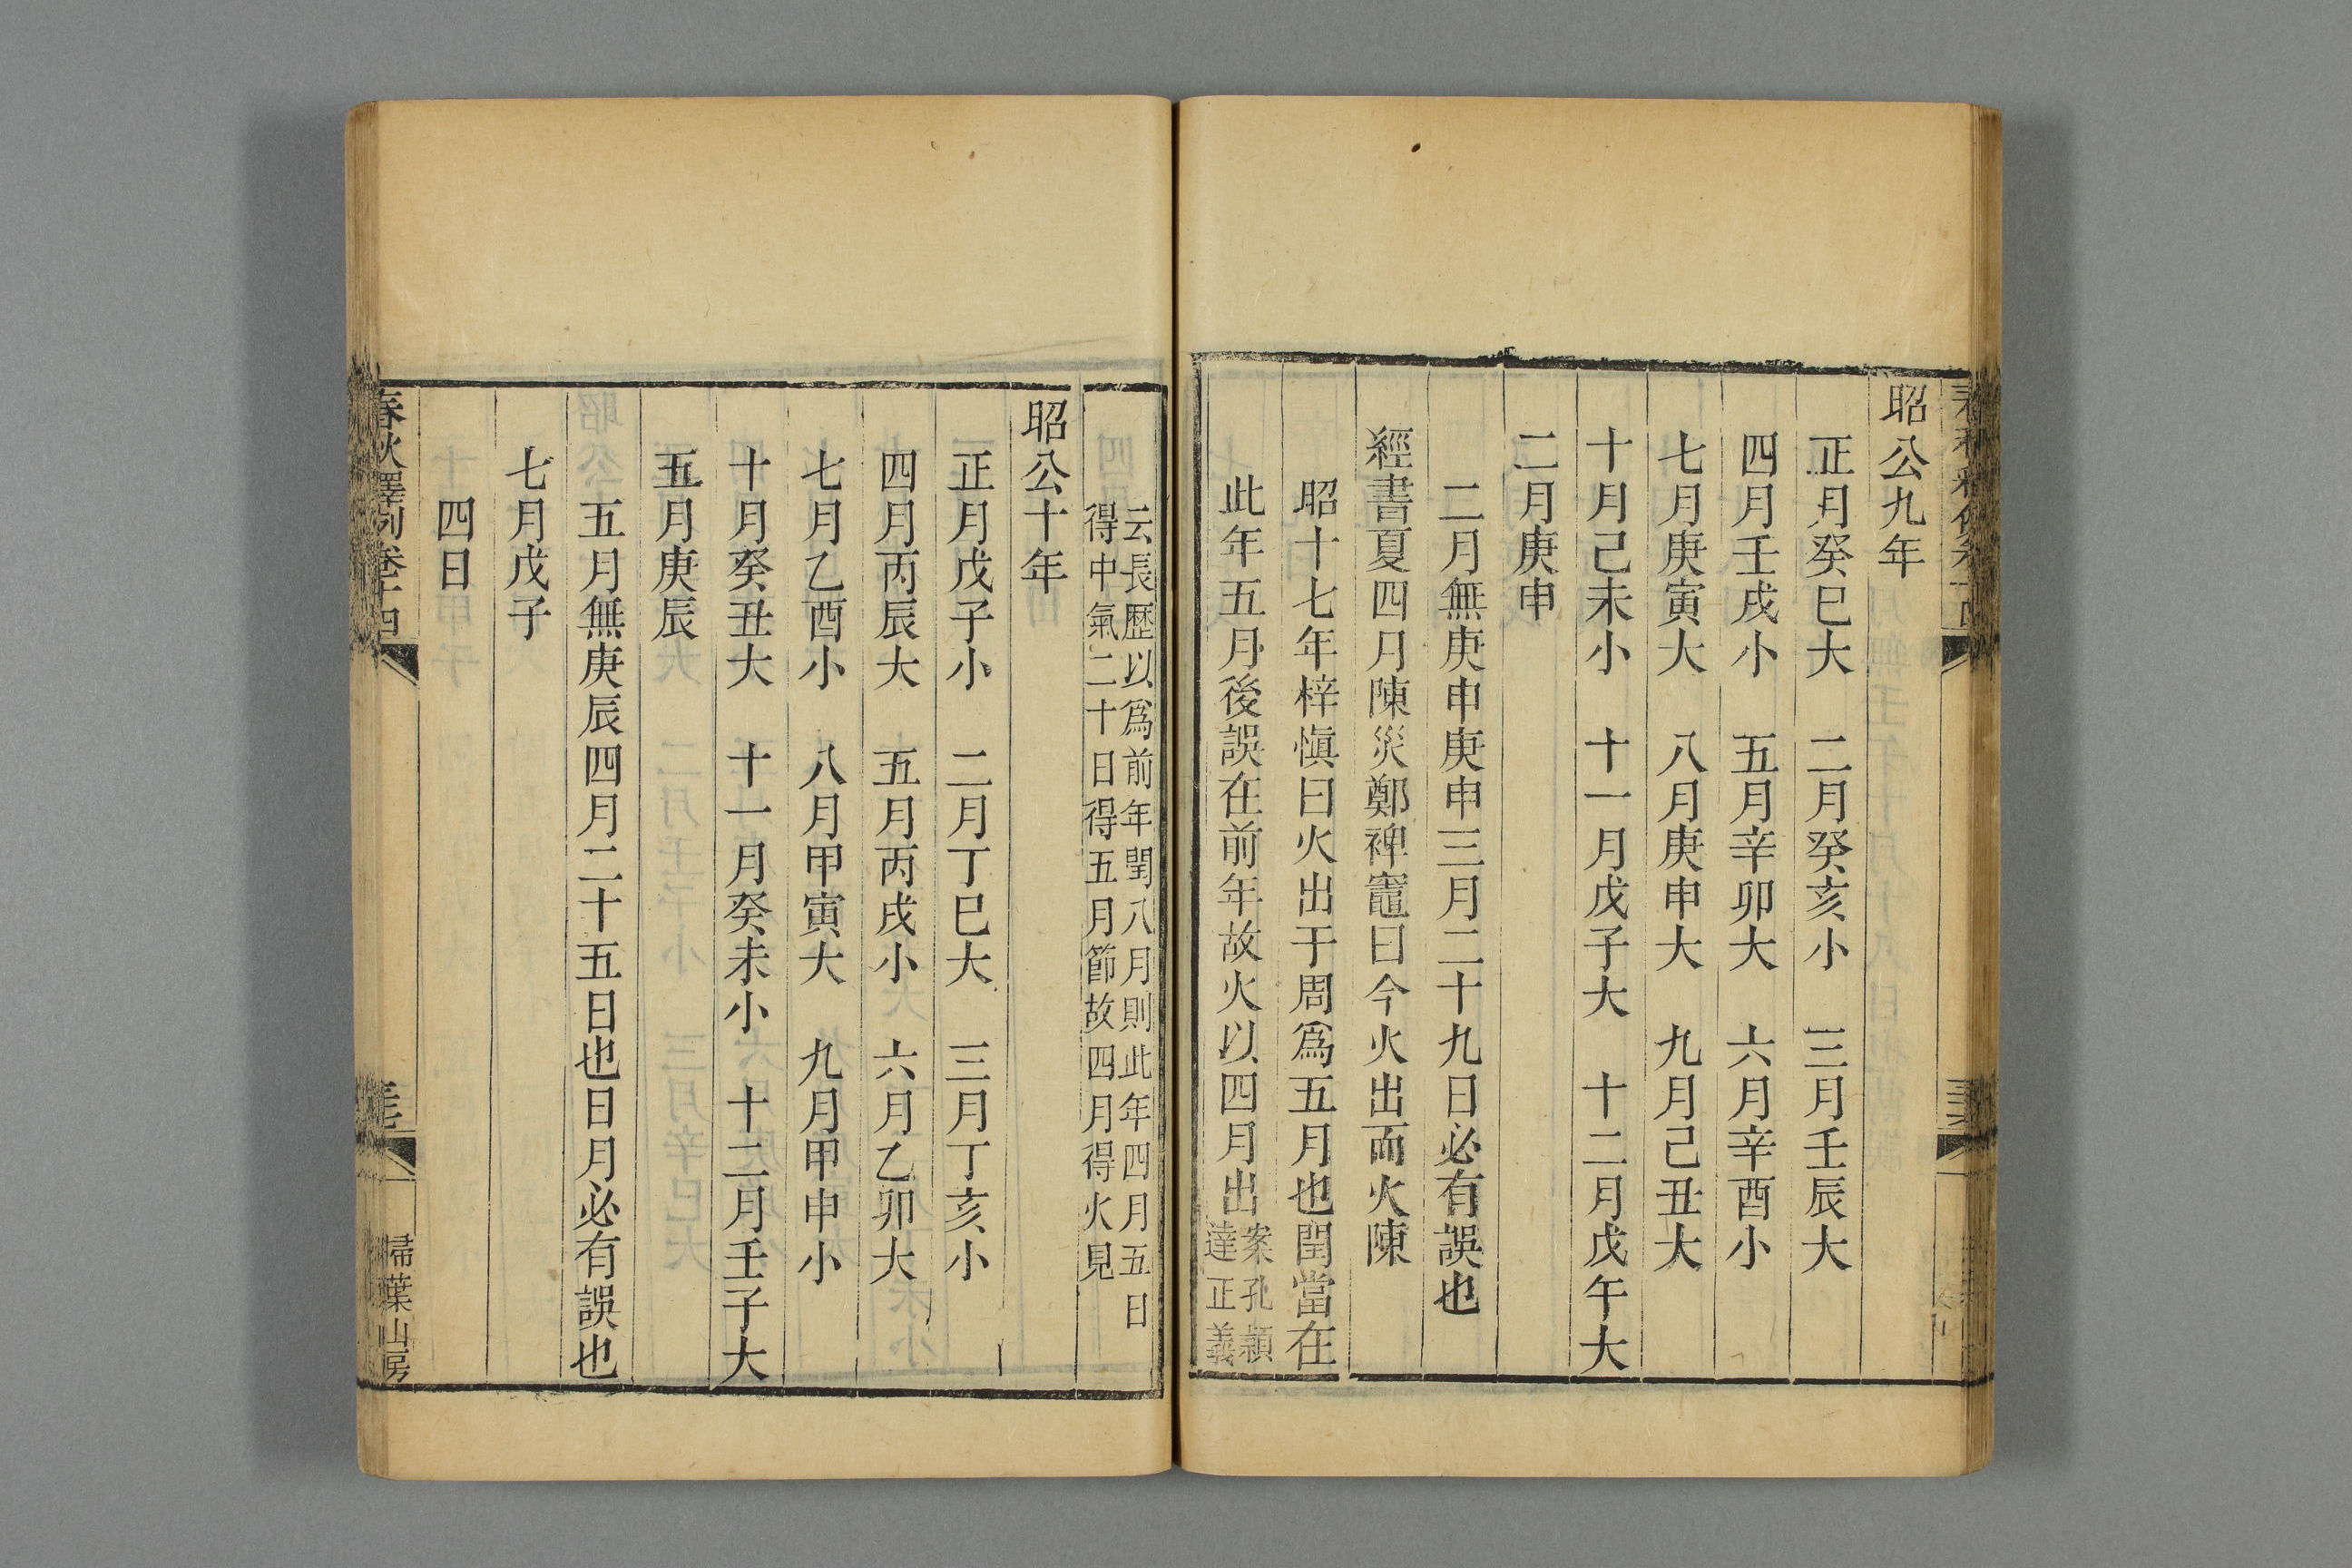 昭公九年
正月癸巳大　二月癸亥小　三月壬辰大
四月壬戌小　五月辛卯大　六月辛酉小
七月庚寅大　八月庚申大　九月己丑大
十月己未小　十一月戊子大　十二月戊午大
二月庚申
二月無庚申庚申三月二十九日必有誤也
經書夏四月陳災鄭裨竈曰今火出而火陳
昭十七年梓慎曰火出于周爲五月也閏當在
此年五月後誤在前年故火以四月出案孔穎
達正義
云長歷以爲前年閏八月則此年四月五日
得中氣二十日得五月節故四月得火見
昭公十年
正月戊子小　二月丁巳大　三月丁亥小
四月丙辰大　五月丙戌小　六月乙卯大
七月乙酉小　八月甲寅大　九月甲申小
十月癸丑大　十一月癸未小　十二月壬子大
五月庚辰
五月無庚辰四月二十五日也日月必有誤也
七月戊子
四日
春秋釋例卷十四
掃葉山房